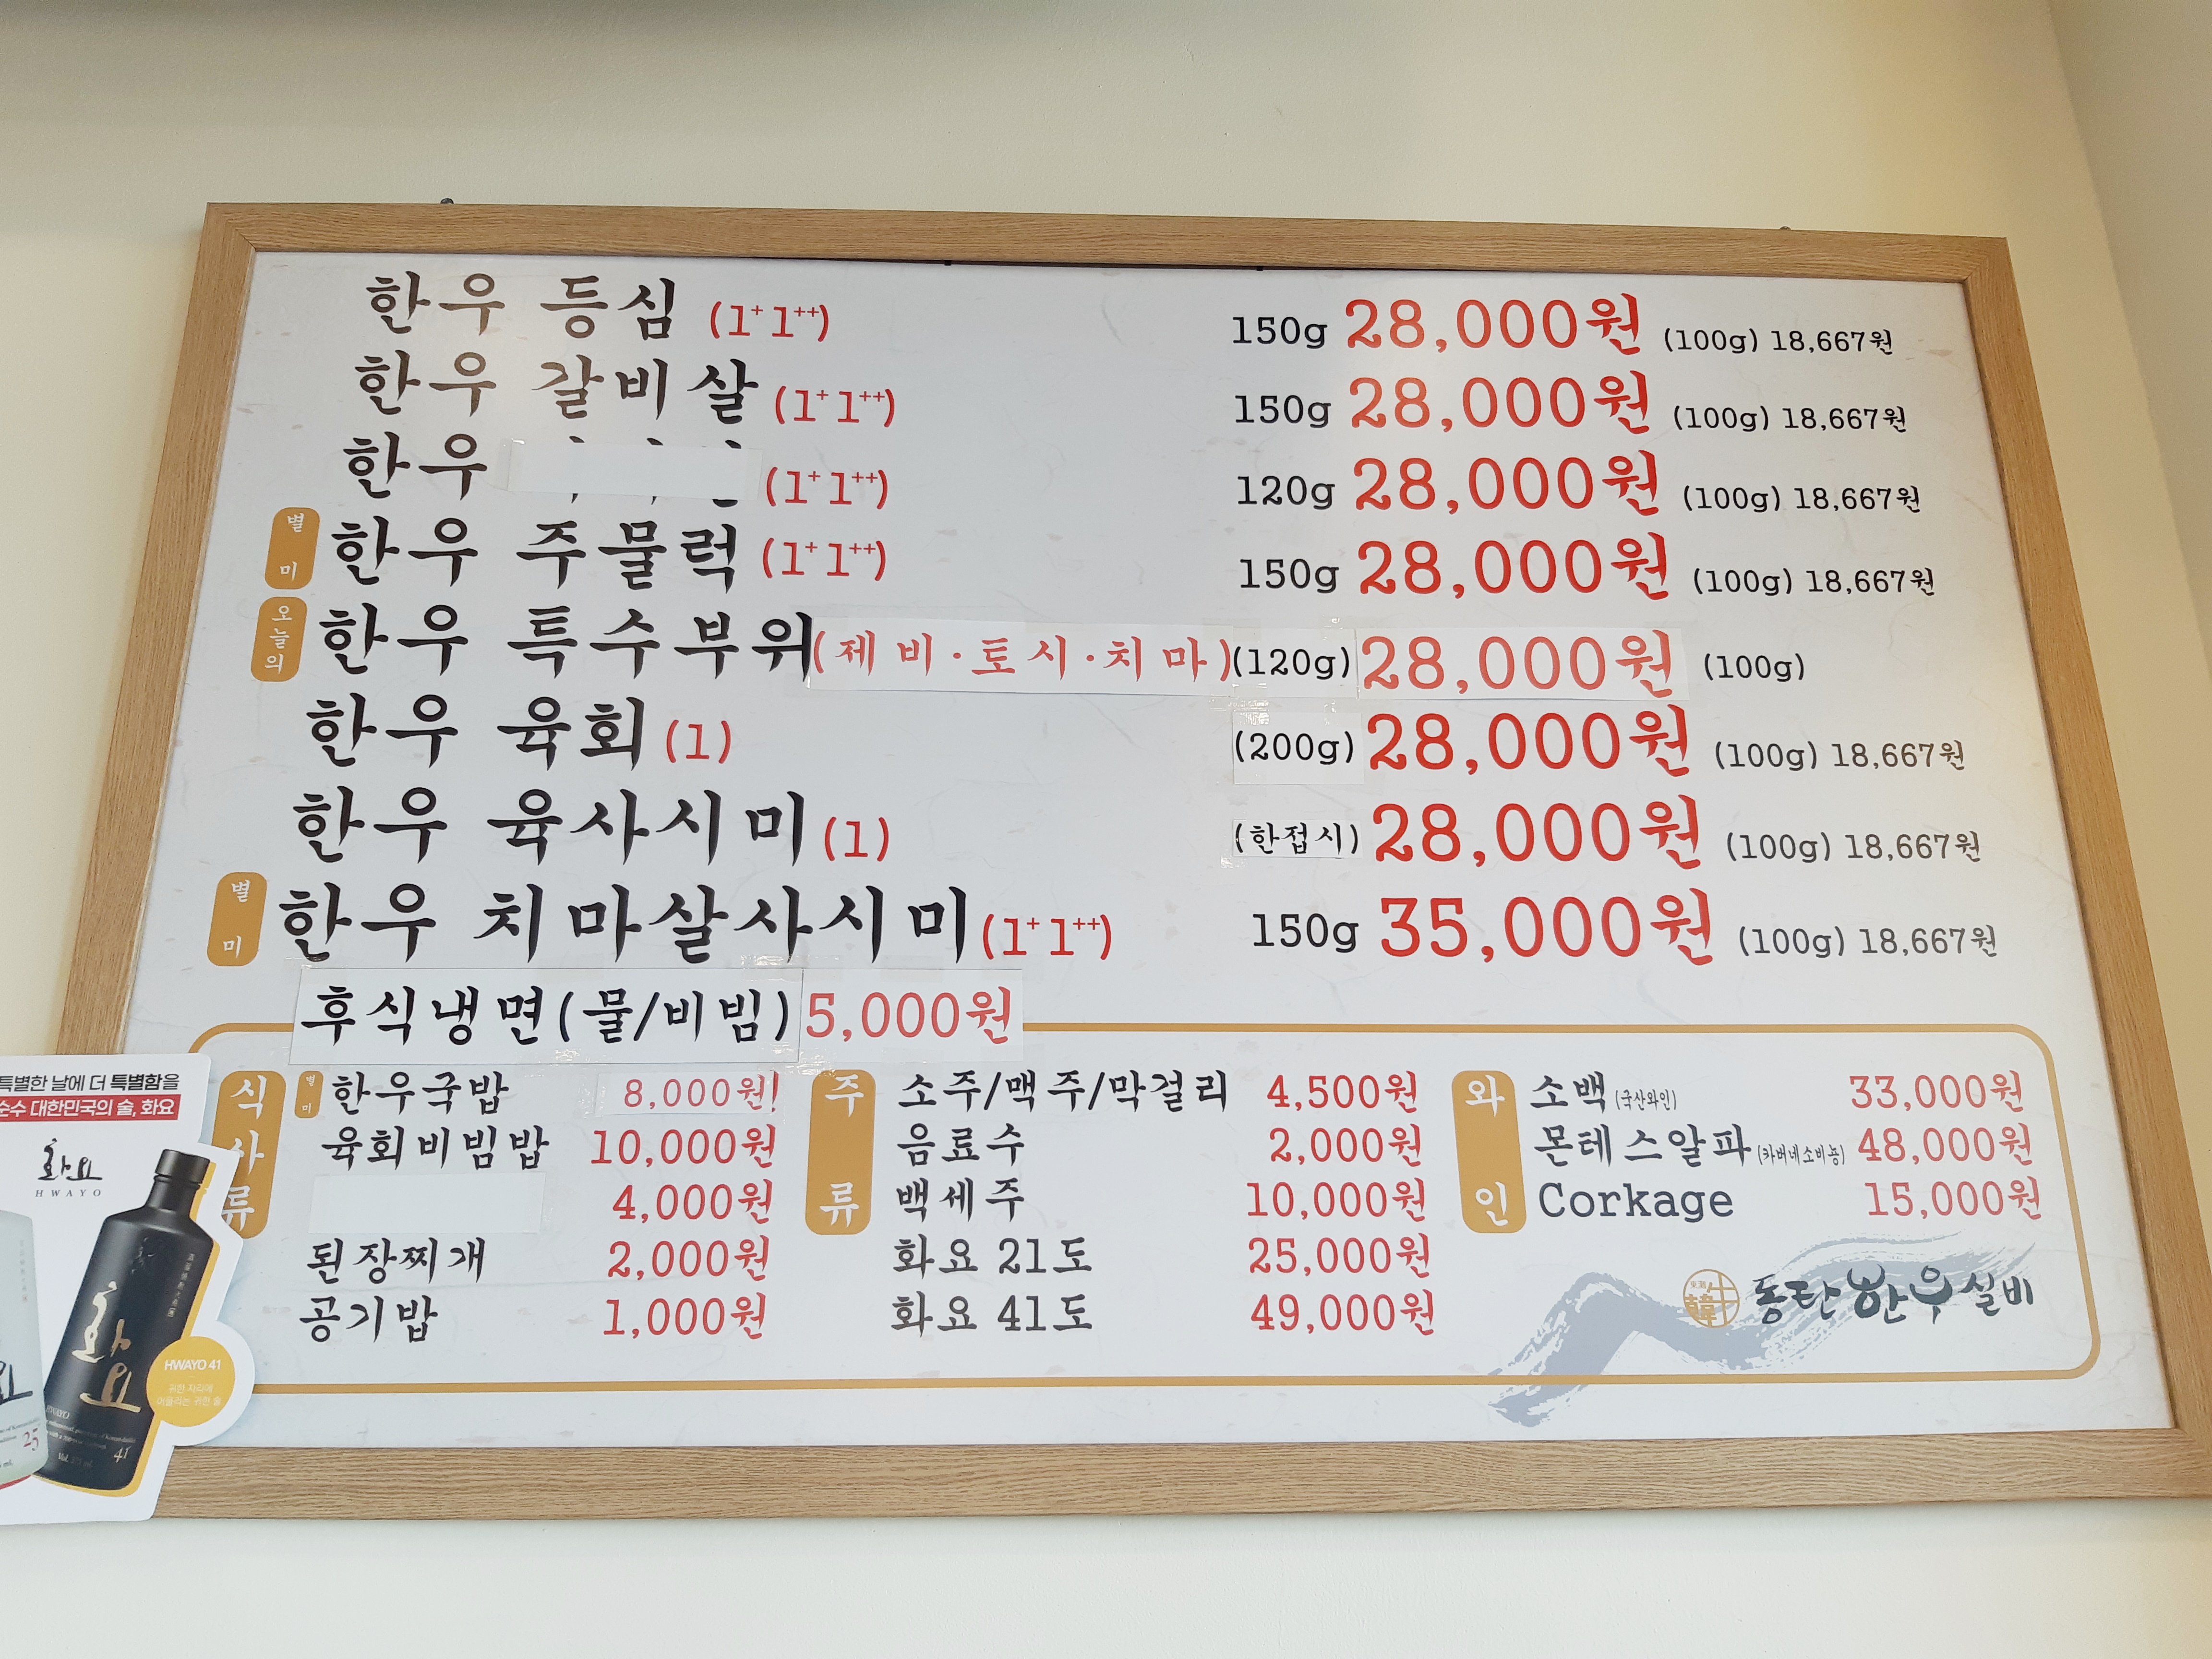 한우 등심 (1+ 1++) 150g 28,000원 (100g) 18,667원
한우 갈비살 (1+ 1++) 150g 28,000원 (100g) 18,667원
한우 (1+ 1++) 120g 28,000원 (100g) 18,667원
별미 한우 주물럭 (1+ 1++) 150g 28,000원 (100g) 18,667원
오늘의 한우 특수부위(제비·토시·치마) (120g) 28,000원 (100g)
한우 육회 (1) (200g) 28,000원 (100g) 18,667원
한우 육사시미 (1) (한접시) 28,000원 (100g) 18,667원
별미 한우 치마살사시미 (1+ 1++) 150g 35,000원 (100g) 18,667원
후식냉면(물/비빔) 5,000원
식사류
별미 한우국밥 8,000원!
육회비빔밥 10,000원
4,000원
된장찌개 2,000원
공기밥 1,000원
주류
소주/맥주/막걸리 4,500원
음료수 2,000원
백세주 10,000원
화요 21도 25,000원
화요 41도 49,000원
와인
소백 (국산와인) 33,000원
몬테스알파 (카버네소비뇽) 48,000원
Corkage 15,000원
韓牛 동탄한우실비
특별한 날에 더 특별함을
순수 대한민국의 술, 화요
화요
HWAYO
화요
HWAYO 41
귀한 자리에
어울리는 귀한 술
HWAYO
41
25